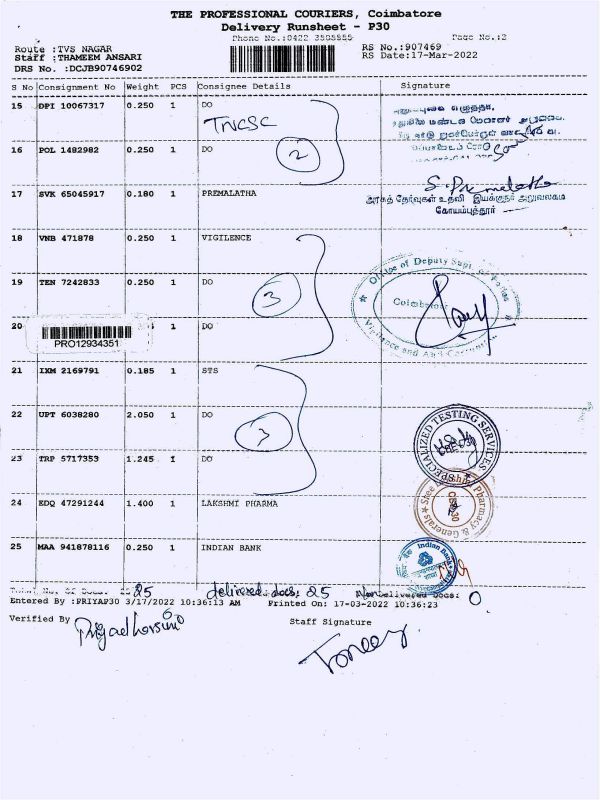 THE PROFESSIONAL COURIERS, Coimbatore
Delivery Runsheet - P30
Phone No.:0422 3508855 Page No.:2
Route :TVS NAGAR RS No.:907469
Staff :THAMEEM ANSARI RS Date:17-Mar-2022
DRS No. :DCJB90746902
S No Consignment No Weight PCS Consignee Details Signature
15 DPI 10067317 0.250 1 DO
TNCSC
16 POL 1482982 0.250 1 DO
2
17 SVK 65045917 0.180 1 PREMALATHA
S. Premalatha
அரசுத் தேர்வுகள் உதவி இயக்குநர் அலுவலகம்
கோயம்புத்தூர்
18 VNB 471878 0.250 1 VIGILENCE
Office of Deputy Supt. of Police
19 TEN 7242833 0.250 1 DO
3
Coimbatore
20 1 DO
PRO12934351
Vigilance and Anti Corruption
21 IXM 2169791 0.185 1 STS
22 UPT 6038280 2.050 1 DO
3
SPECIALIZED TESTING SERVICES
23 TRP 5717353 1.245 1 DO
24 EDQ 47291244 1.400 1 LAKSHMI PHARMA
Pharmacy & Generals
25 MAA 941878116 0.250 1 INDIAN BANK
Indian Bank
25 delivered docs: 25 Nondelivered Docs: 0
Entered By :PRIYAP30 3/17/2022 10:36:13 AM Printed On: 17-03-2022 10:36:23
Verified By Priyadharsini Staff Signature